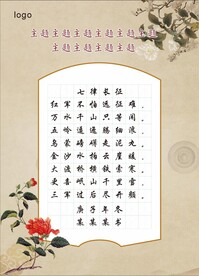 logo
主题主题主题主题主题
主题主题主题
七律长征
红军不怕远征难，
万水千山只等闲。
五岭逶迤腾细浪，
乌蒙磅礴走泥丸。
金沙水拍云崖暖，
大渡桥横铁索寒。
更喜岷山千里雪，
三军过后尽开颜。
庚子年冬
某某某书